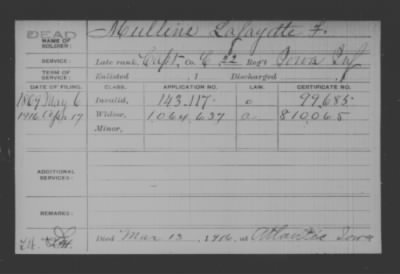 DEAD
NAME OF SOLDIER: Mullins Lafayette F.
SERVICE: Late rank, Capt, Co. C 22 Reg't Iowa Inf
TERM OF SERVICE: Enlisted , 1 Discharged , 1
DATE OF FILING. CLASS. APPLICATION NO. LAW. CERTIFICATE NO.
1869 May 6 Invalid, 143.117 o 99.685
1916 Apr 17 Widow, 1064,637 a 810,065
Minor,
ADDITIONAL SERVICES:
REMARKS:
Died Mar 13, 1916, at Atlantic Iowa